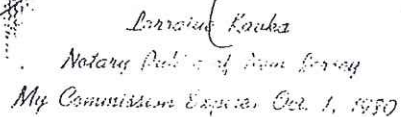 Lorraine Kauka
Notary Public of New Jersey
My Commission Expires Oct. 1, 1980